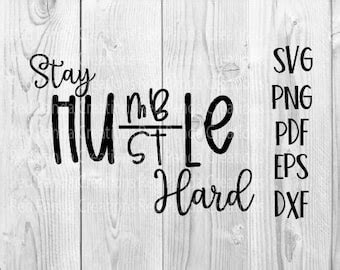 Stay
HU MB LE
ST
Hard
SVG
PNG
PDF
EPS
DXF